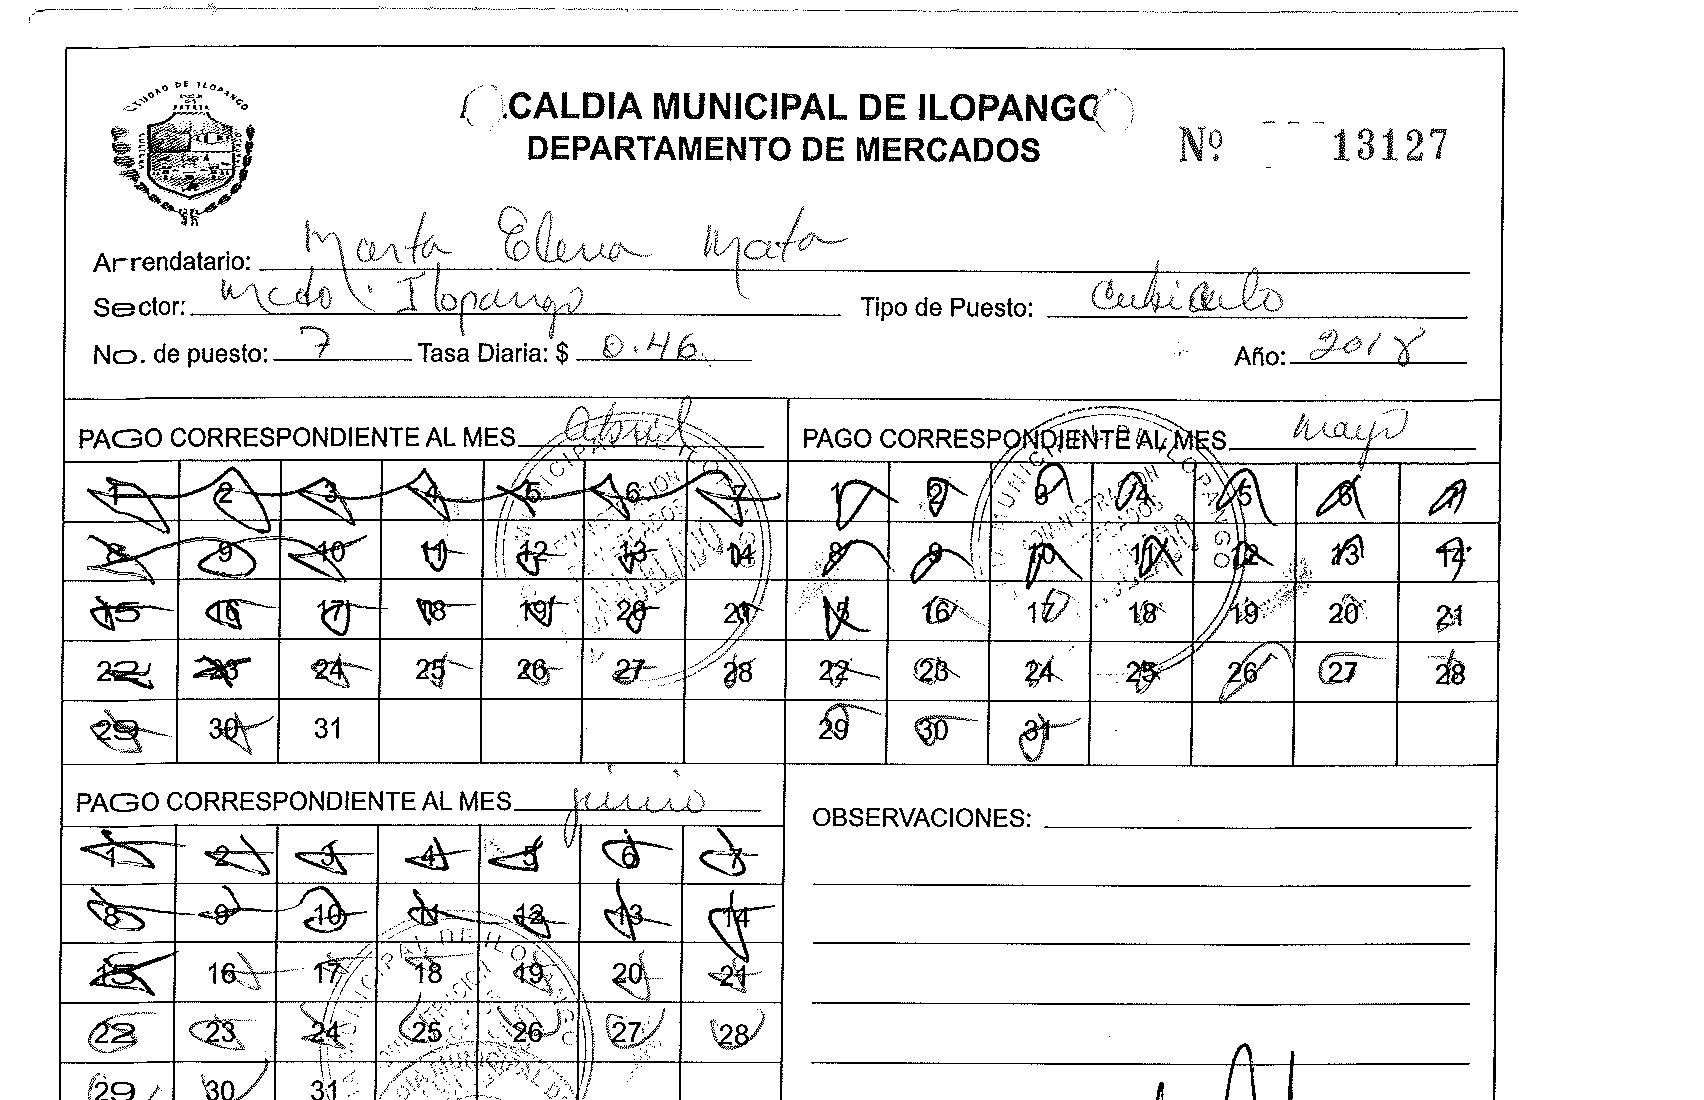 CIUDAD DE ILOPANGO
PATRIA
ALCALDIA MUNICIPAL DE ILOPANGO
DEPARTAMENTO DE MERCADOS
Nº 13127
Arrendatario: Marta Elena Mata
Sector: Mcdo. Ilopango Tipo de Puesto: Cubiculo
No. de puesto: 7 Tasa Diaria: $ 0.46 Año: 2018
PAGO CORRESPONDIENTE AL MES Abril
1 2 3 4 5 6 7
8 9 10 11 12 13 14
15 16 17 18 19 20 21
22 23 24 25 26 27 28
29 30 31
PAGO CORRESPONDIENTE AL MES mayo
1 2 3 4 5 6 7
8 9 10 11 12 13 14
15 16 17 18 19 20 21
22 23 24 25 26 27 28
29 30 31
PAGO CORRESPONDIENTE AL MES junio
1 2 3 4 5 6 7
8 9 10 11 12 13 14
15 16 17 18 19 20 21
22 23 24 25 26 27 28
29 30 31
OBSERVACIONES: